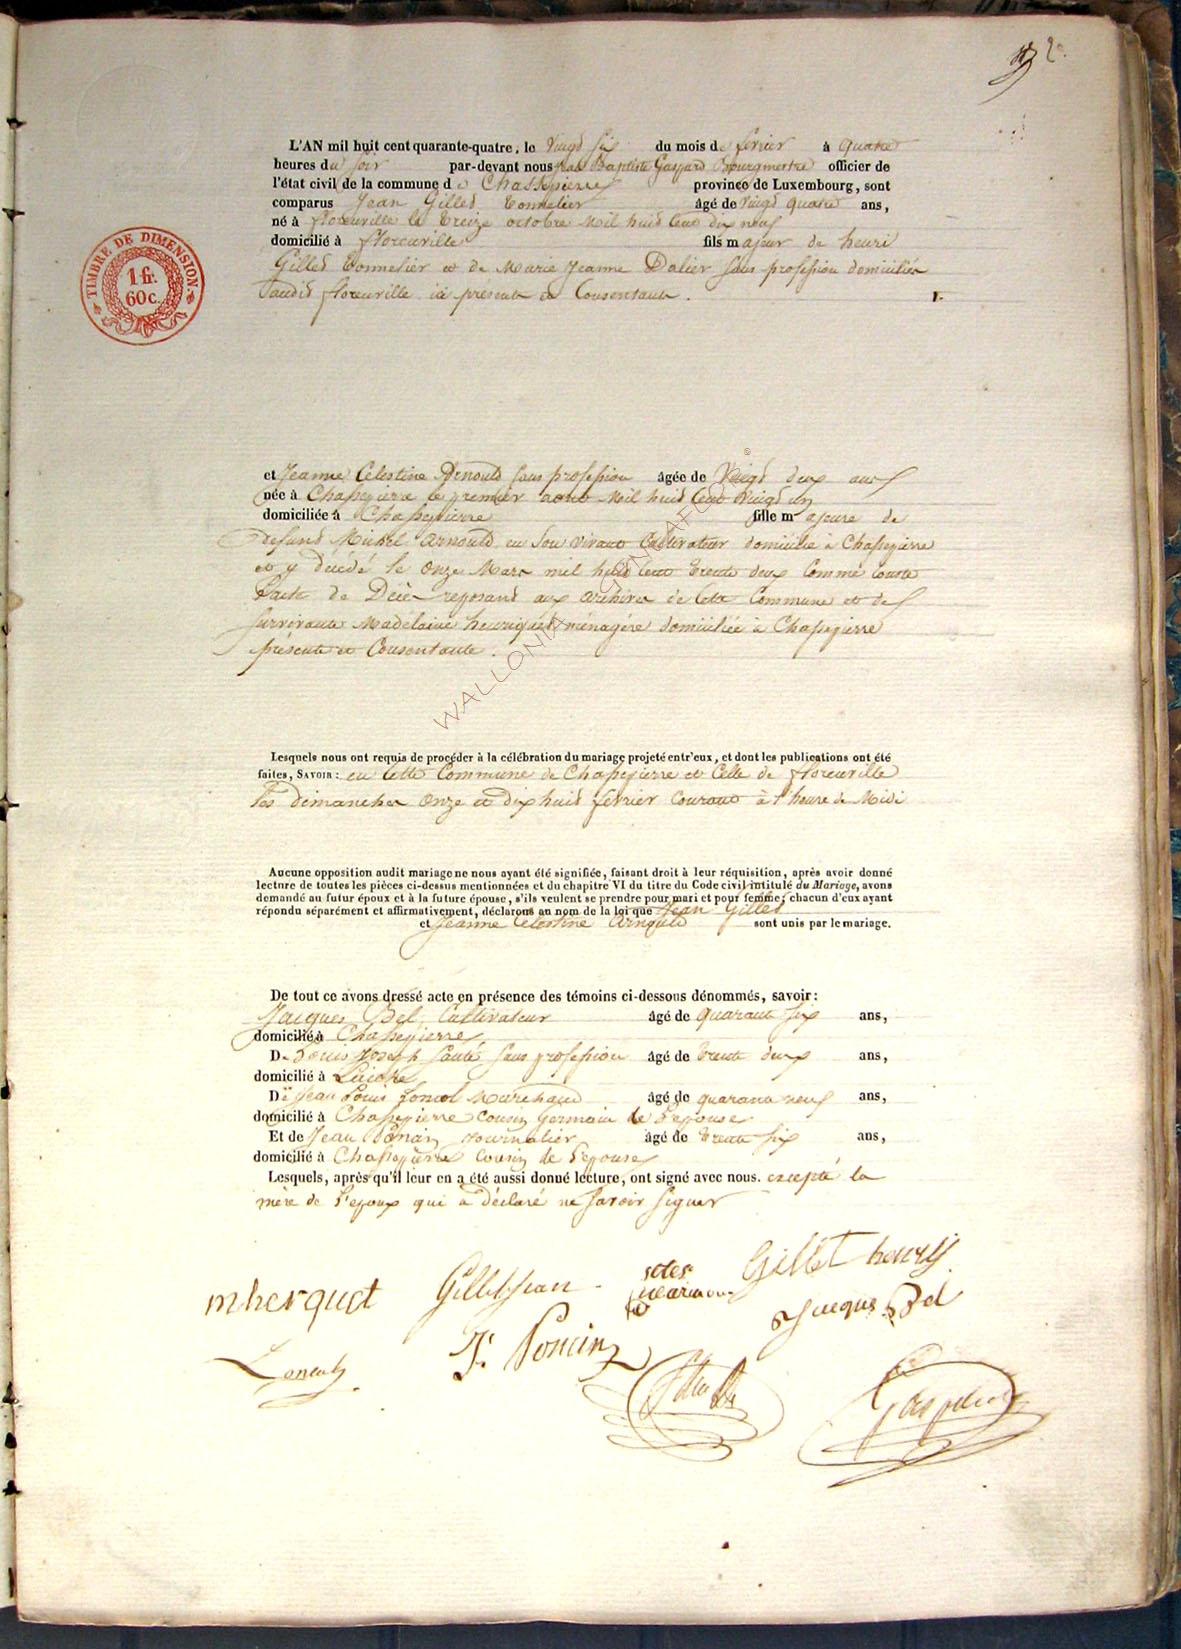 N° 2.
TIMBRE DE DIMENSION.
1 fr.
60 c.
L'AN mil huit cent quarante-quatre, le Vingd six du mois de fevrier à quatre
heures du soir par-devant nous Jean Baptiste Gaspard Bourgmestre officier de
l'état civil de la commune de Chassepierre province de Luxembourg, sont
comparus Jean Gilles tonnelier âgé de Vingd quatre ans,
né à florenville le treize octobre mil huid Cent dix neuf
domicilié à florenville fils majeur de henri
Gilles tonnelier et de Marie Jeanne Dalier sans profession domiciliés
audid florenville ici présents et Consentants.
et Jeanne Célestine Arnould sans profession âgée de Vingd deux ans
née à Chassepierre le premier aout mil huid Cent Vingd un
domiciliée à Chassepierre fille majeure de
defund Michel Arnould en son vivant Cultivateur domicilié à Chassepierre
et y décédé le onze Mars mil huid Cent trente deux Comme Conste
l'acte de Décès reposand aux archives de Cette Commune et de
survivante Madelaine henriquet ménagère domiciliée à Chassepierre
présente et Consentante.
WALLONIX GENEAFGOS ©
Lesquels nous ont requis de procéder à la célébration du mariage projeté entr'eux, et dont les publications ont été
faites, SAVOIR: en Cette Commune de Chassepierre et Celle de florenville
les dimanches onze et dix huid fevrier Courant à l'heure de Midi
Aucune opposition audit mariage ne nous ayant été signifiée, faisant droit à leur réquisition, après avoir donné
lecture de toutes les pièces ci-dessus mentionnées et du chapitre VI du titre du Code civil intitulé du Mariage, avons
demandé au futur époux et à la future épouse, s'ils veulent se prendre pour mari et pour femme; chacun d'eux ayant
répondu séparément et affirmativement, déclarons au nom de la loi que Jean Gilles
et Jeanne Célestine Arnould sont unis par le mariage.
De tout ce avons dressé acte en présence des témoins ci-dessous dénommés, savoir:
Jacques Bel, Cultivateur âgé de quarante six ans,
domicilié à Chassepierre
De Louis Joseph sans profession âgé de trente deux ans,
domicilié à
De Jean Louis Marchand âgé de quarante neuf ans,
domicilié à Chassepierre cousin germain de l'epouse
Et de Jean journalier âgé de trente six ans,
domicilié à Chassepierre cousin de l'epouse
Lesquels, après qu'il leur en a été aussi donné lecture, ont signé avec nous. excepté la
mère de l'epoux qui a déclaré ne savoir signer
mherquet Gillet Jean Gillet henry
Jacques Bel
J. Poncin